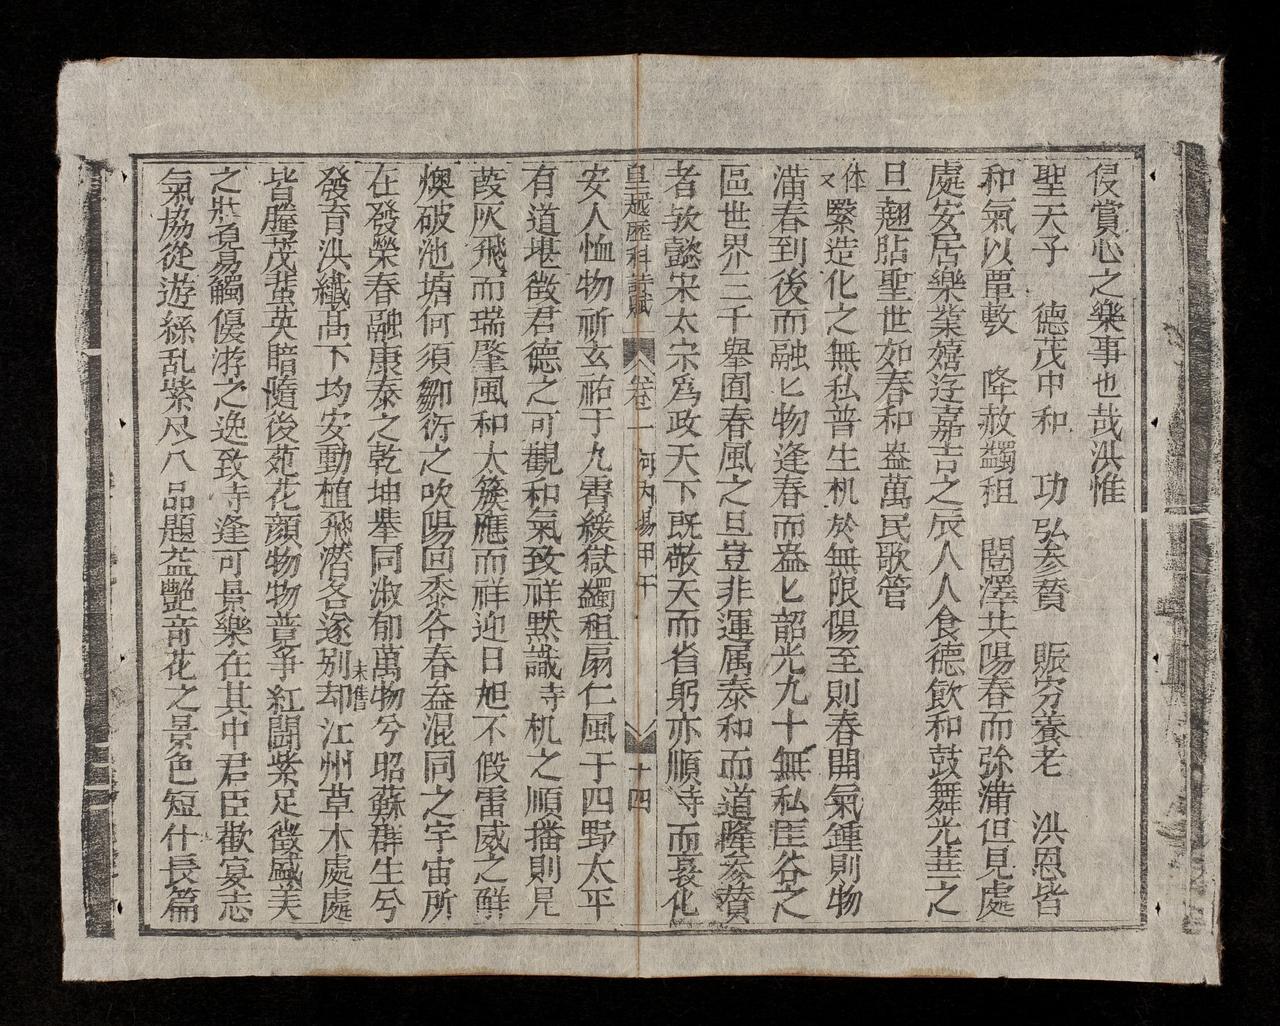 侵賞心之樂事也哉洪惟
聖天子　德茂中和　功弘参賛　賑穷養老　洪恩皆
和氣以覃敷　降赦蠲租　闓澤共陽春而弥満但見處
處安居樂業嬉遊嘉吉之辰人人食德飲和鼓舞光華之
旦翹贴聖世如春和盎萬民歌管
体又繄造化之無私普生机於無限陽至則春開氣鍾則物
満春到後而融匕物逢春而盎匕韶光九十無私厓谷之
區世界三千舉囿春風之旦豈非運属泰和而道隆参賛
者欤懿宋太宗為政天下既敬天而省躬亦順寺而裒化
皇越歷科詩賦　卷二　河内場甲午　十四
安人恤物祈玄祐于九霄緩獄蠲租扇仁風于四野太平
有道堪徵君德之可觀和氣致祥黙識寺机之順播則見
葭灰飛而瑞肇風和太簇應而祥迎日旭不假雷威之觧
燠破池塘何須鄒衍之吹陽回黍谷春盎混同之宇宙所
在發榮春融康泰之乾坤舉同淑郁萬物兮昭蘇群生兮
發育洪纖髙下均安動植飛潜各遂别却未惟江州草木處處
皆騰茂蜚英暗隨後苑花顔物物普争紅闘紫足徵盛美
之狀頁易觸優游之逸致寺逢可景樂在其中君臣歡宴志
氣協從遊絲乱紫尺八品題益艷竒花之景色短什長篇